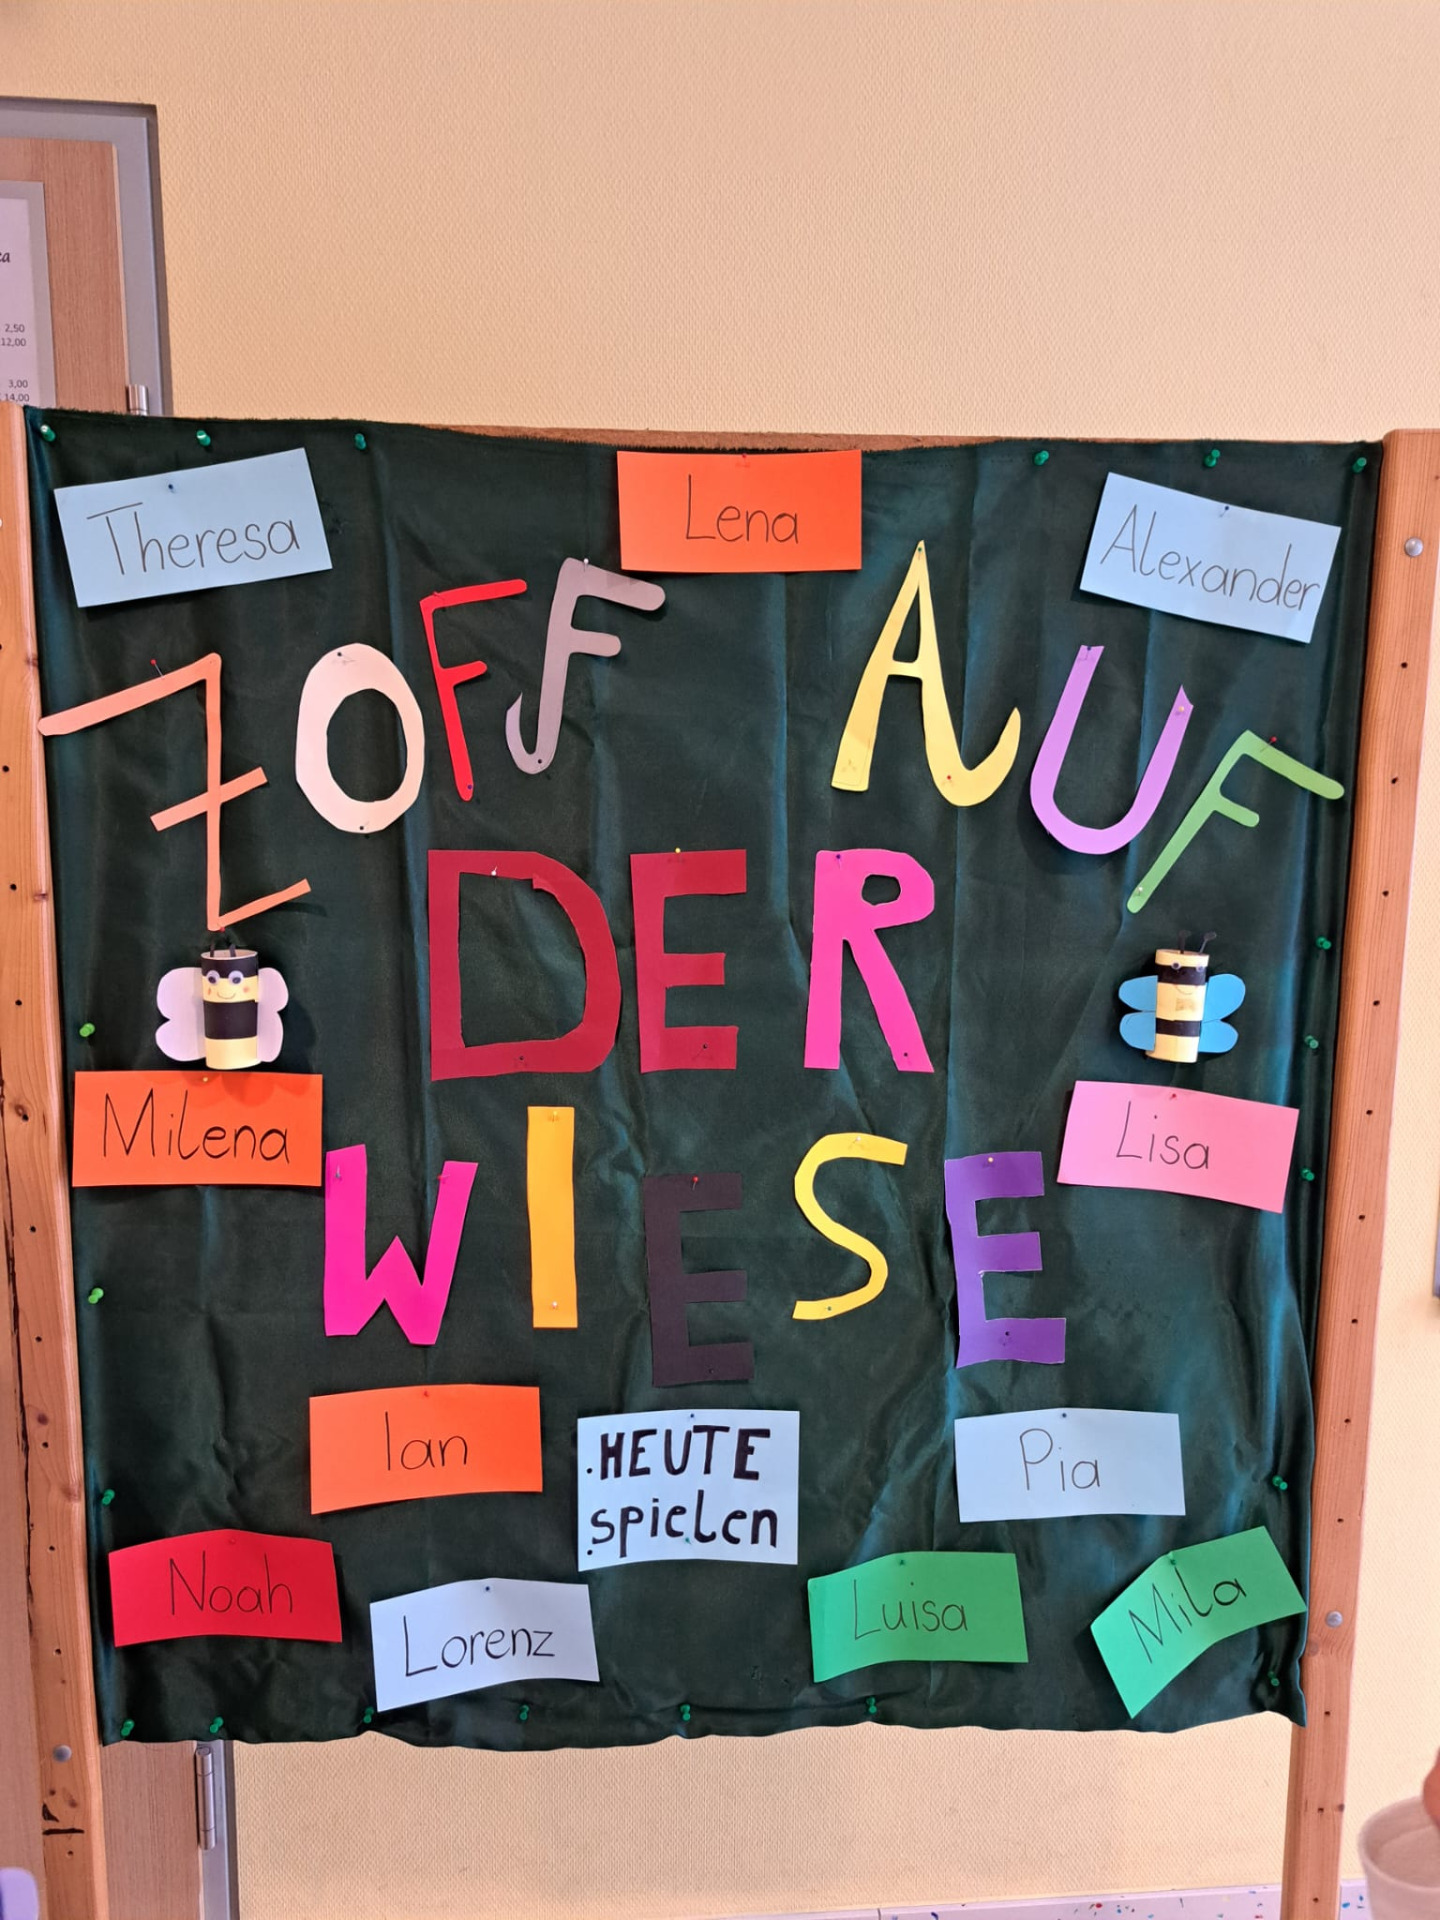 a
2,50
12,00
3,00
14,00
Theresa
Lena
Alexander
ZOFF AUF
DER
Milena
Lisa
WIESE
Ian
HEUTE
spielen
Pia
Noah
Lorenz
Luisa
Mila